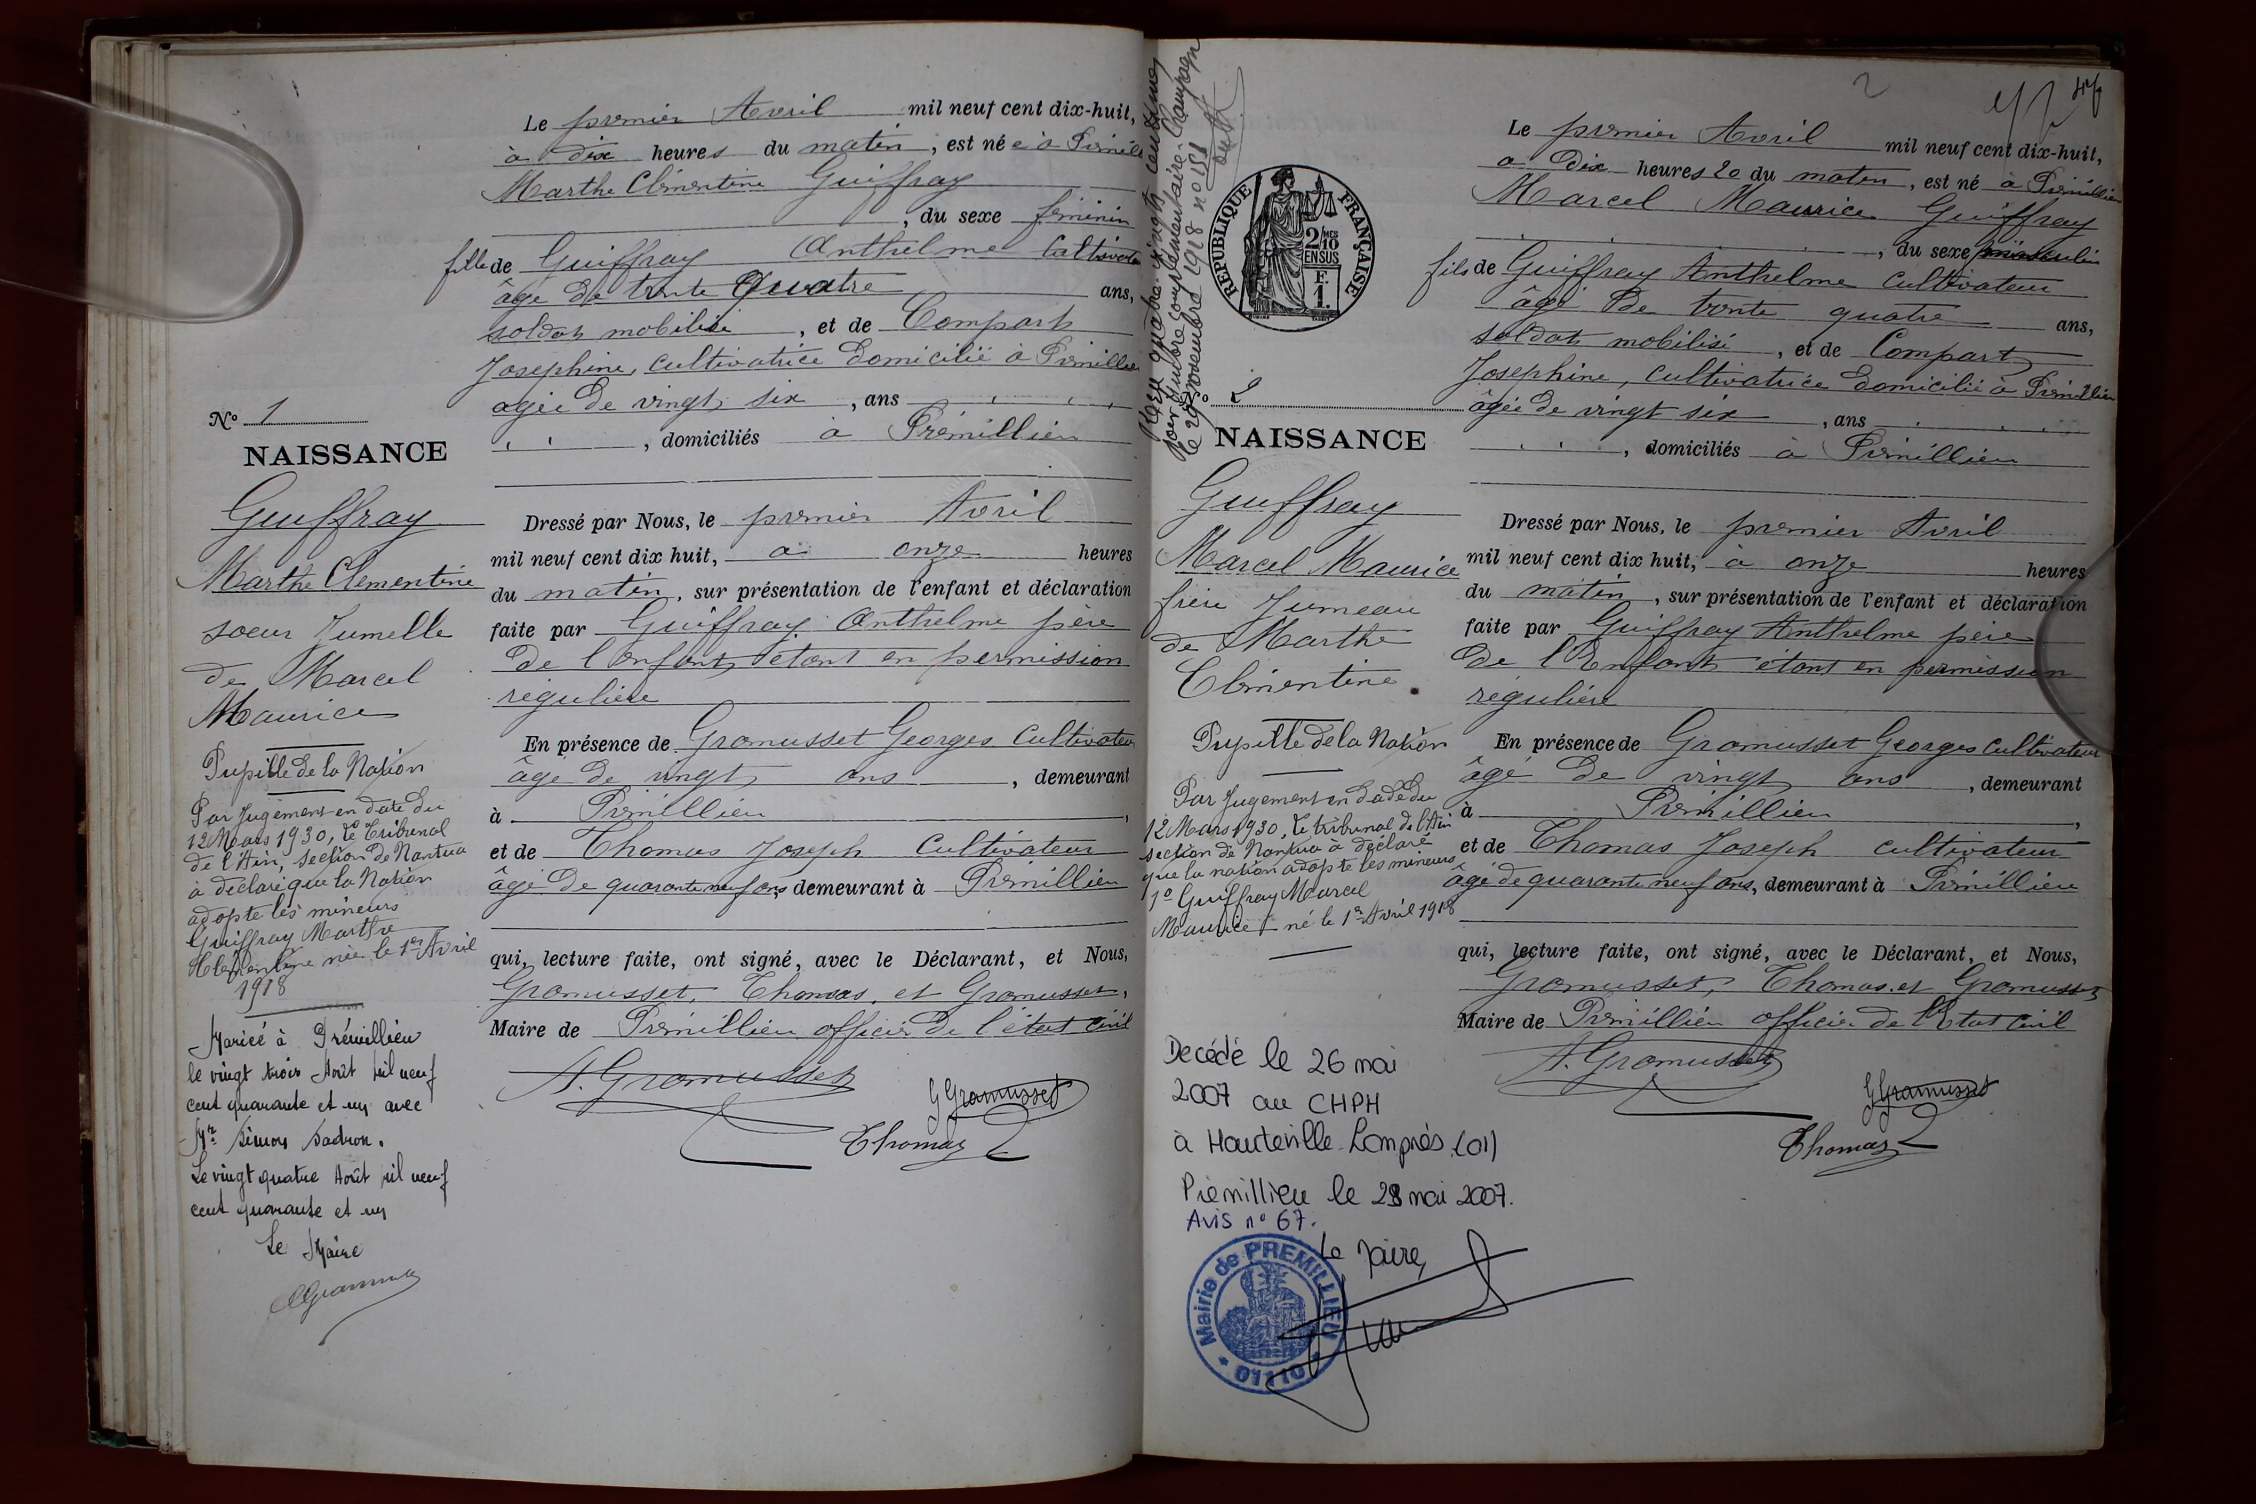 Le premier Avril mil neuf cent dix-huit,
à dix heures du matin, est née à Prémillieu
Marthe Clémentine Guiffray
, du sexe féminin
fille de Guiffray Anthelme Cultivateur
âgé de trente Quatre ans,
soldat mobilisé, et de Compart
Josephine, cultivatrice domicilié à Prémillieu
agée de vingt six, ans
, domiciliés à Prémillieu
Dressé par Nous, le premier Avril
mil neuf cent dix huit, à onze heures
du matin, sur présentation de l'enfant et déclaration
faite par Guiffray Anthelme père
de l'enfant étant en permission
régulière
En présence de Gromusset Georges Cultivateur
âgé de vingt ans, demeurant
à Prémillieu,
et de Thomas Joseph Cultivateur
âgé de quarante neuf ans, demeurant à Prémillieu
qui, lecture faite, ont signé, avec le Déclarant, et Nous,
Gromusset, Thomas, et Gromusset,
Maire de Prémillieu officier de l'état civil
A. Gromusset
G Gramusset
Thomas
No 1
NAISSANCE
Guiffray
Marthe Clementine
soeur Jumelle
de Marcel
Maurice
Pupille de la Nation
Par Jugement en date du
12 Mars 1930, le Tribunal
de l'Ain, section de Nantua
à déclaré que la Nation
adopte les mineurs
Guiffray Marthe
née le 1er Avril
1918
Mariée à Prémillieu
le vingt trois Août mil neuf
cent quarante et un avec
Mr Simon Badron.
Le vingt quatre Août mil neuf
cent quarante et un
Le Maire
pour timbre complémentaire Champagn
le 29 Novembre 1918 no 158
REPUBLIQUE FRANÇAISE
2/10 MES
EN SUS
F.
1.
2
No 2
NAISSANCE
Guiffray
Marcel Maurice
frère Jumeau
de Marthe
Clémentine
Pupille de la Nation
Par Jugement en date du
12 Mars 1930, le tribunal de l'Ain
section de Nantua a déclaré
que la nation adopte les mineurs
1o Guiffray Marcel
Maurice né le 1er Avril 1918
Decédé le 26 mai
2007 au CHPH
à Hauteville-Lompnès (01)
Prémillieu le 28 mai 2007.
Avis no 67.
Le Maire,
Mairie de PREMILLIEU
01110
Le premier Avril mil neuf cent dix-huit,
a Dix heures 20 du matin, est né à Prémillieu
Marcel Maurice Guiffray
, du sexe masculin
fils de Guiffray Anthelme cultivateur
âgé de trente quatre ans,
soldat mobilisé, et de Compart
Josephine, cultivatrice domicilié à Prémillieu
âgée de vingt six, ans
, domiciliés à Prémillieu
Dressé par Nous, le premier Avril
mil neuf cent dix huit, à onze heures
du matin, sur présentation de l'enfant et déclaration
faite par Guiffray Anthelme père
de l'Enfant étant en permission
régulière
En présence de Gromusset Georges cultivateur
âgé de vingt ans, demeurant
à Prémillieu,
et de Thomas Joseph cultivateur
âgé de quarante neuf ans, demeurant à Prémillieu
qui, lecture faite, ont signé, avec le Déclarant, et Nous,
Gromusset, Thomas, et Gromusset
Maire de Prémillieu officier de l'Etat Civil
A. Gromusset
G Gramusset
Thomas